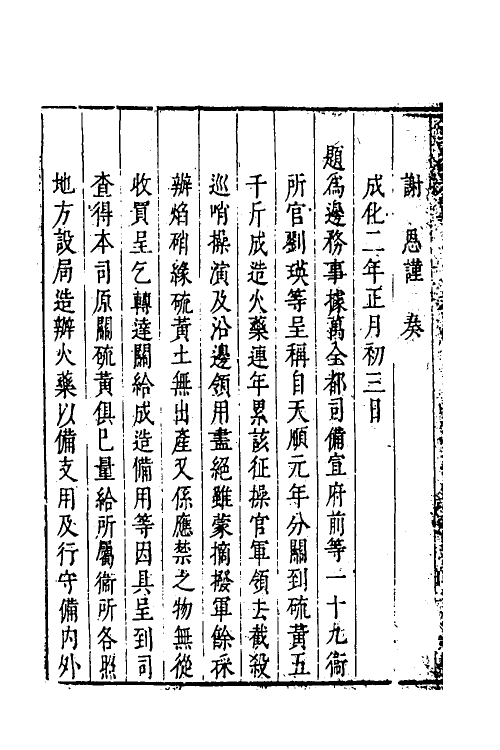 謝恩謹奏
成化二年正月初三日
題爲邊務事據萬全都司備宣府前等一十九衞
所官劉瑛等呈稱自天順元年分關到硫黃五
千斤成造火藥連年累該征操官軍領去截殺
巡哨操演及沿邊領用盡絕雖蒙摘撥軍餘採
辦焰硝緣硫黃土無出產又係應禁之物無從
收買呈乞轉達關給成造備用等因具呈到司
查得本司原關硫黃俱巳量給所屬衞所各照
地方設局造辦火藥以備支用及行守備內外